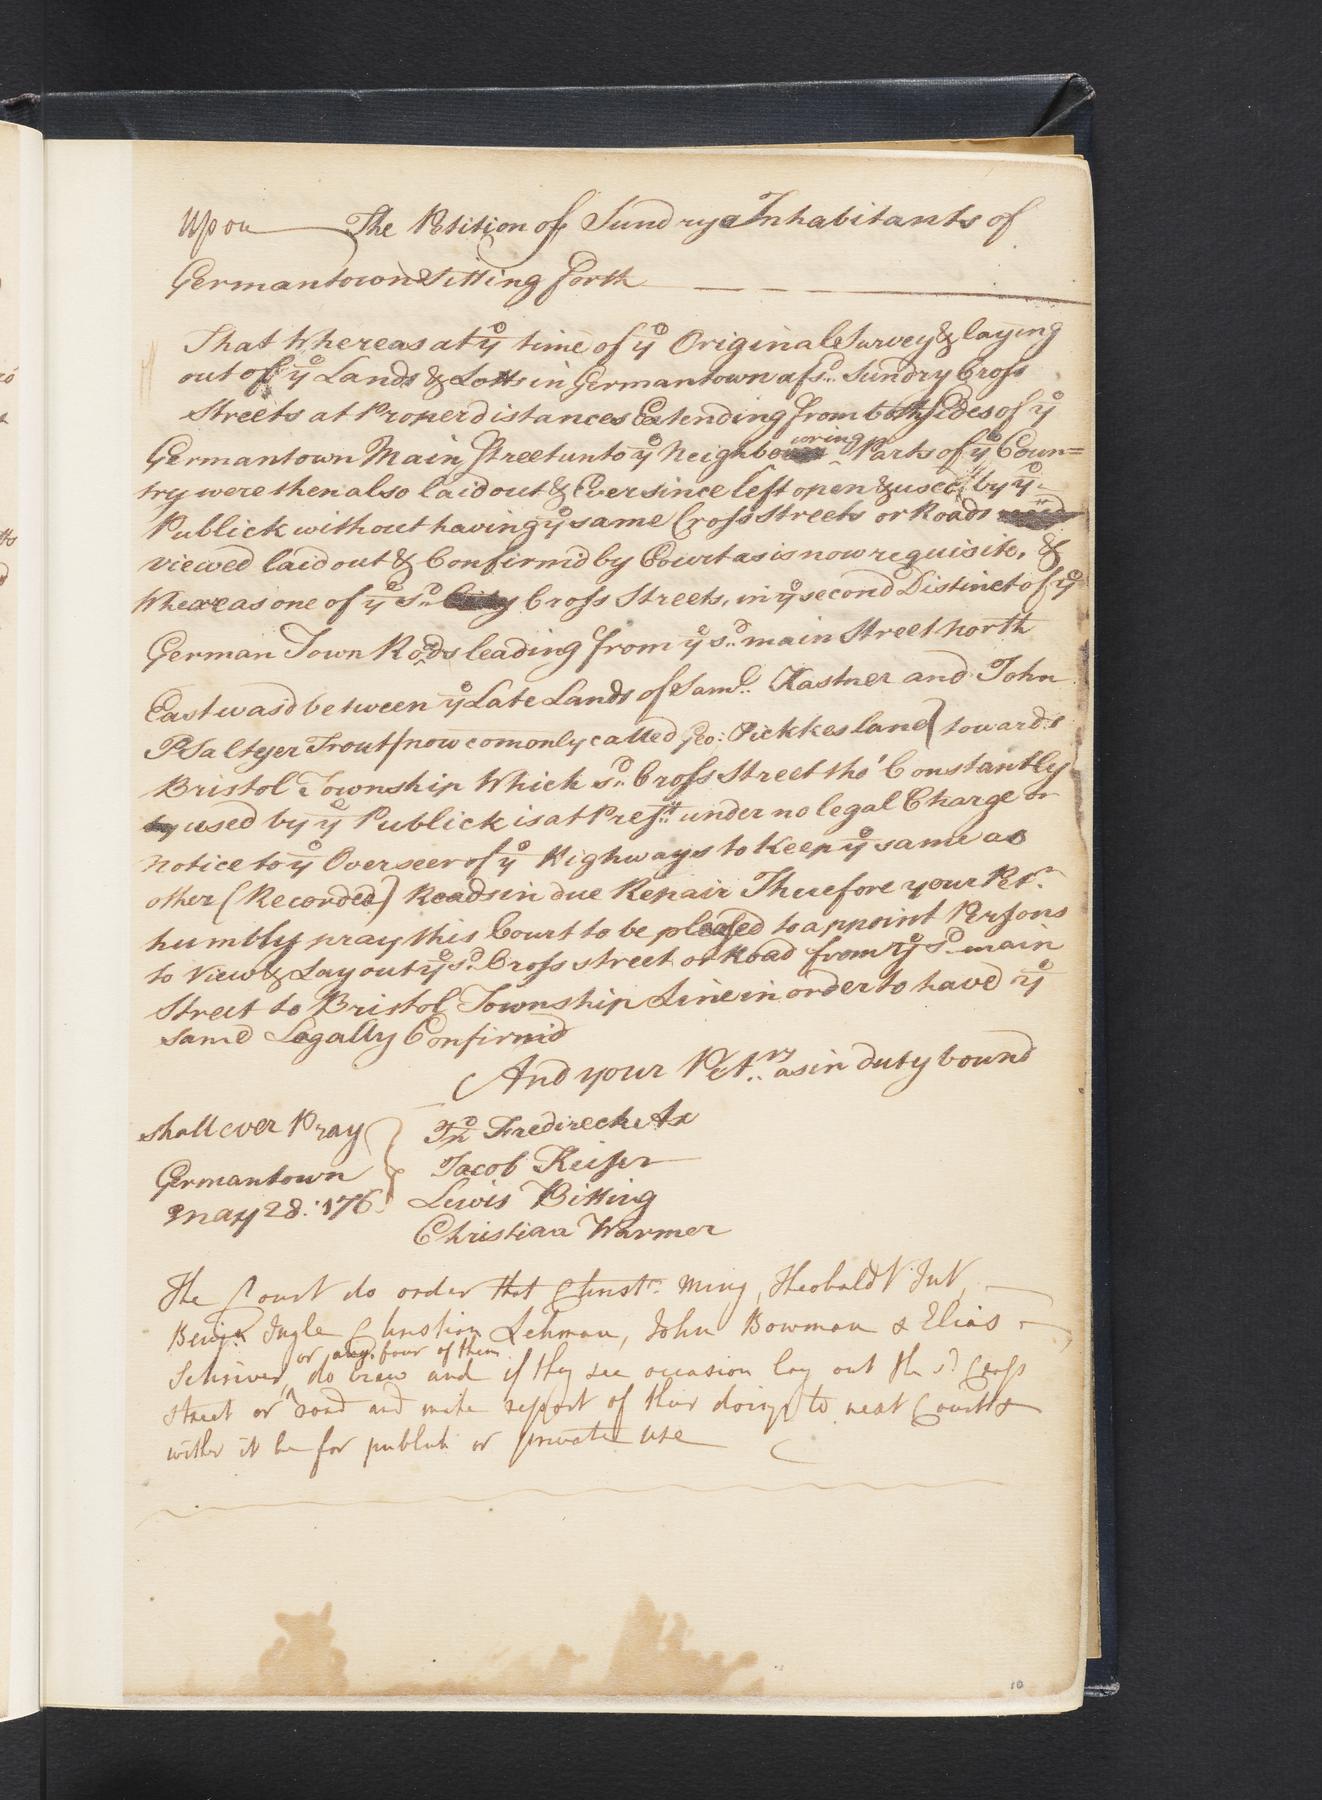 Upon The Petition of Sundrye Inhabitants of
Germantown Sitting forth
That Whereas at ye time of ye Original Survey & laying
out of ye Lands & Lotts in Germantown afsd. Sundry Cross
Streets at Proper distances Extending from both Sides of ye
Germantown Main Street unto ye Neighbouring Parts of ye Coun=
try were then also laid out & Ever since left open & used by ye
Publick without having ye same Cross Streets or Roads
viewed laid out & Confirmd by Court as is now requisite, &
Whereas one of ye sd. Cross Streets, in ye second Distinct of ye
German Town Rods leading from ye sd. main Street North
Eastward between ye Late Lands of Saml. Kastner and John
Trout (now comonly called Geo: Pickkes lane) towards
Bristol Township Which sd. Cross Street tho' Constantly
used by ye Publick is at Prest. under no legal Charge or
notice to ye Overseer of ye Highways to keep ye same as
other (Recorded) Roads in due Repair Therefore your Petrs.
humbly pray this Court to be pleased to appoint Persons
to View & Lay out ye sd. Cross street or Road from ye sd. main
Street to Bristol Township Line in order to have ye
same Legally Confirmd
And your Petrs. as in duty bound
shall ever Pray
Germantown
May 28. 176
Jno Fredireck Ax
Jacob Keiser
Lewis Bitting
Christian Warmer
The Court do order that Christr. Ming, Theobald
Benja. Ingle Christian Lehman, John Bowman & Elias
or any four of them
Schriver, do view and if they see occasion lay out the sd. Cross
street or road and make report of their doings to next Court &
wither it be for publick or private use
10